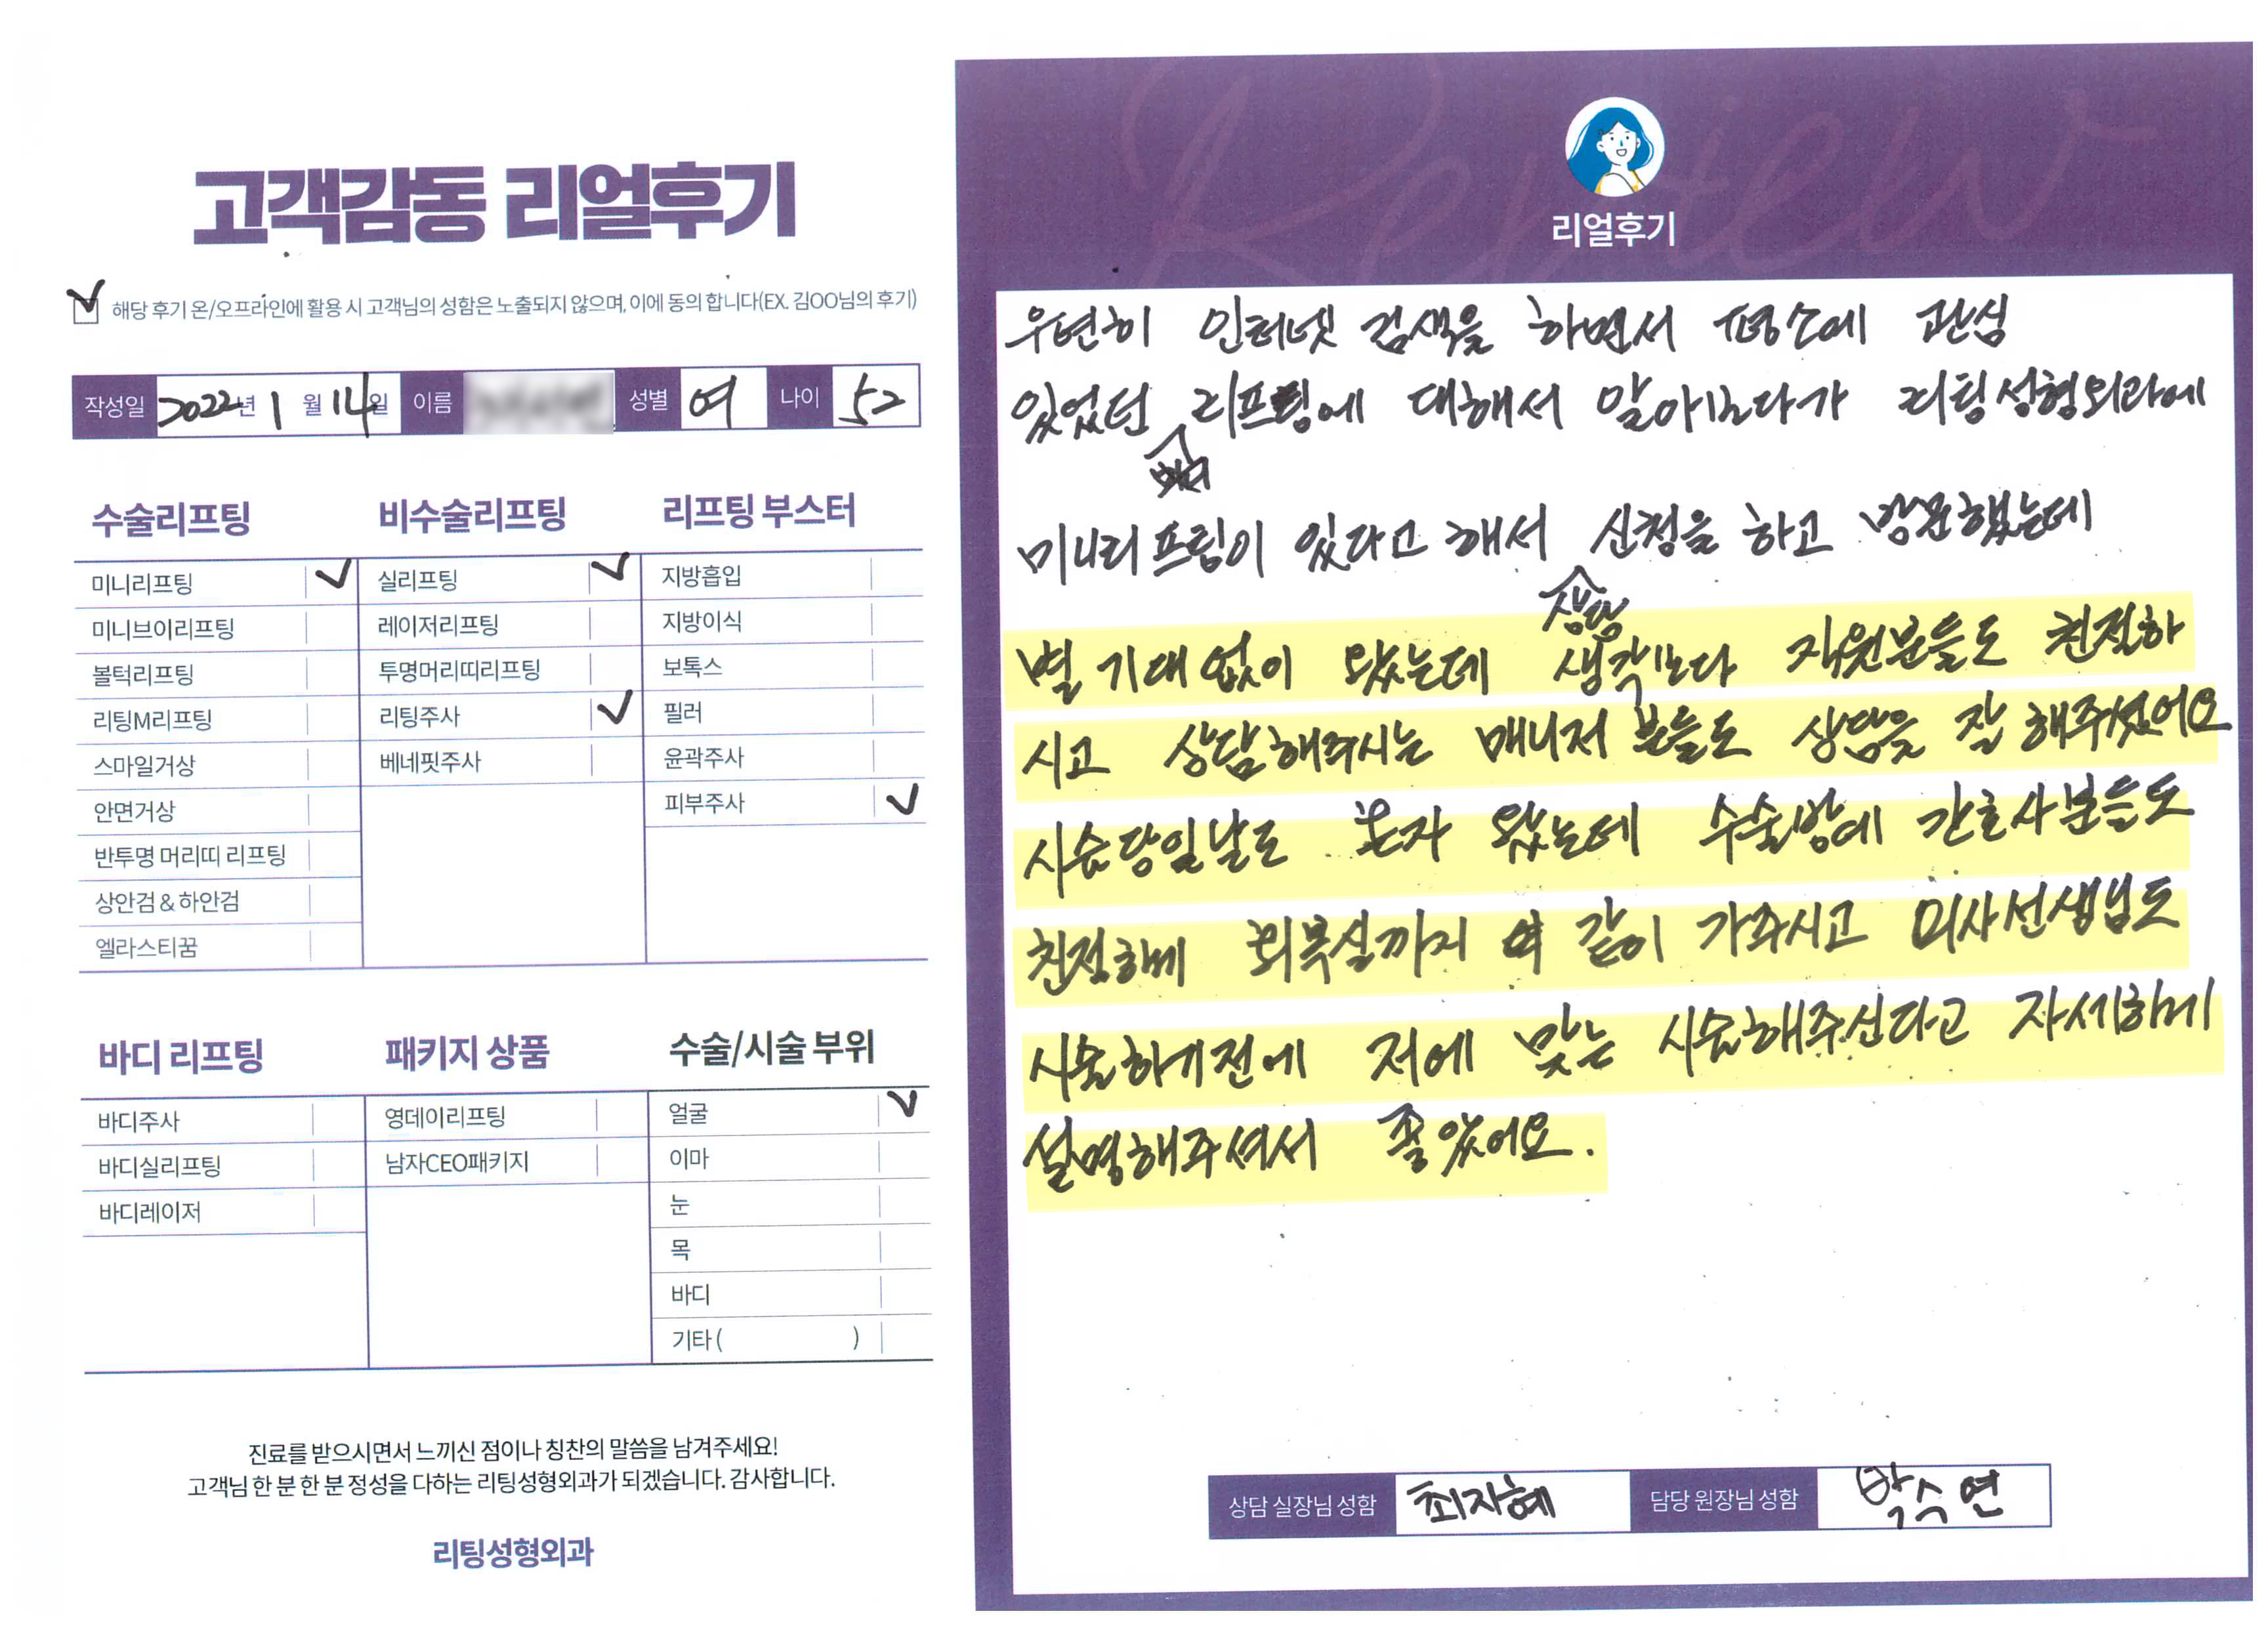 고객감동 리얼후기
해당 후기 온/오프라인에 활용 시 고객님의 성함은 노출되지 않으며, 이에 동의 합니다(EX. 김OO님의 후기)
작성일 2022년 1월 14일 이름 성별 여 나이 52
수술리프팅
미니리프팅
미니브이리프팅
볼턱리프팅
리팅M리프팅
스마일거상
안면거상
반투명 머리띠 리프팅
상안검 & 하안검
엘라스티꿈
비수술리프팅
실리프팅
레이저리프팅
투명머리띠리프팅
리팅주사
베네핏주사
리프팅 부스터
지방흡입
지방이식
보톡스
필러
윤곽주사
피부주사
바디 리프팅
바디주사
바디실리프팅
바디레이저
패키지 상품
영데이리프팅
남자CEO패키지
수술/시술 부위
얼굴
이마
눈
목
바디
기타 ( )
진료를 받으시면서 느끼신 점이나 칭찬의 말씀을 남겨주세요!
고객님 한 분 한 분 정성을 다하는 리팅성형외과가 되겠습니다. 감사합니다.
리팅성형외과
Review
리얼후기
우연히 인터넷 검색을 하면서 평소에 관심
있었던 리프팅에 대해서 알아보다가 리팅성형외과에
미니리프팅이 있다고 해서 신청을 하고 방문했는데
별 기대없이 왔는데 생각보다 직원분들도 친절하
시고 상담해주시는 매니저 분들도 상담을 잘 해주셨어요
시술당일날도 혼자 왔는데 수술방에 간호사분들도
친절하게 회복실까지 같이 가주시고 의사선생님도
시술하기전에 저에 맞는 시술해주신다고 자세하게
설명해주셔서 좋았어요.
상담 실장님 성함 최자혜 담당 원장님 성함 박수연